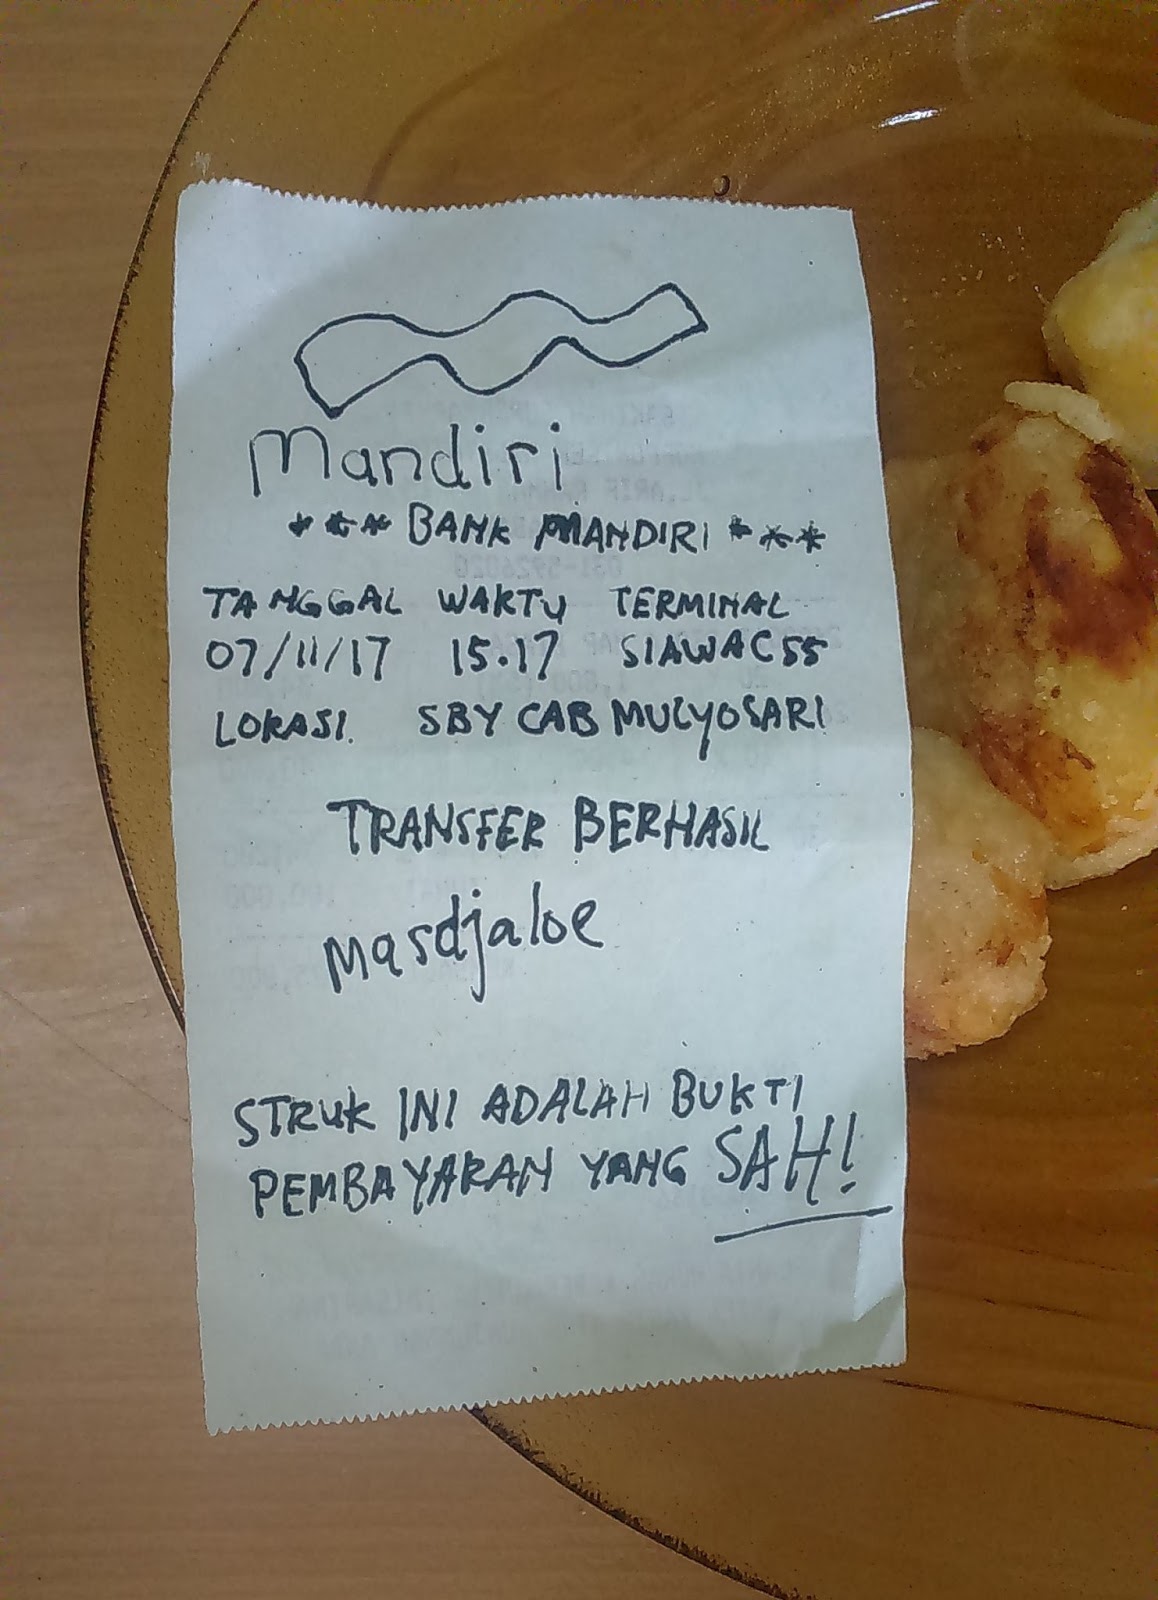 Mandiri
*** BANK MANDIRI ***
TANGGAL WAKTU TERMINAL
07/11/17 15.17 S1AWAC55
LOKASI. SBY CAB MULYOSARI
TRANSFER BERHASIL
masdjaloe
STRUK INI ADALAH BUKTI
PEMBAYARAN YANG SAH!